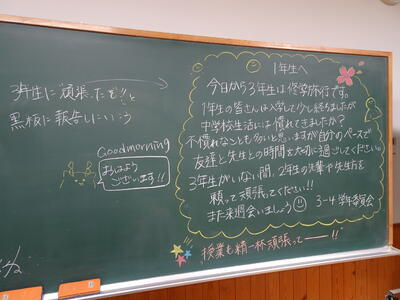 3年生に頑張ったぞ!!と
黒板に報告しにいこう
Goodmorning
おはよう
ございます!!
1年生へ
今日から3年生は修学旅行です。
1年生の皆さんは入学して少し経ちましたが
中学校生活には慣れてきましたか?
不慣れなことも多いと思いますが自分のペースで
友達と先生との時間を大切に過ごしてください。
3年生がいない間、2年生の先輩や先生方を
頼って頑張ってください!!
また来週会いましょう 3-4 学年委員会
授業も精一杯頑張ってーーー!!